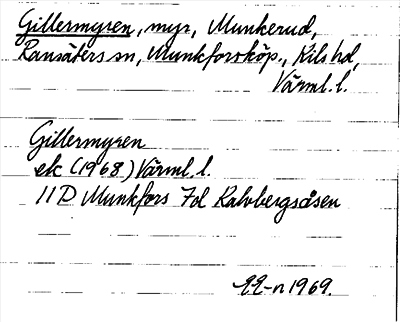 Gillermyren, myr, Munkerud,
Ransäters sn, Munkforsköp., Kils hd,
Värml. l.
Gillermyren
ek (1968) Värml. l.
11D Munkfors 7d Kalvbergsåsen
1969.